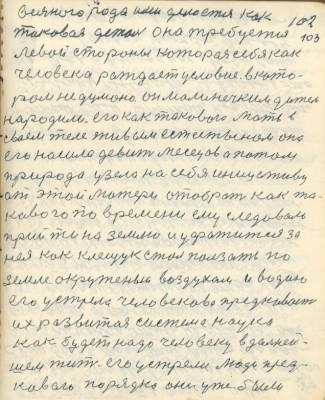 всякого рода они делются как 102
таковая детям она требуется 103
левой стороны которая себя как
человека рождает условие. в като-
ром недумоно он маминечким дитем
народили. его как такового мать в
своем теле живым естественом она
его насила девить месецов а потом
природа узела на себя инициативу
от этой матери отобрать как та-
кового по времени ему следовало
прийти на землю и ухватится за
нея как клещук стал ползать по
земле окруженый воздухам и водою
его устрела человеково предкавает
их развитая система наука
как будет надо человеку в дальней-
шем жить. его устрели люди пред-
кавого порядка они уже были